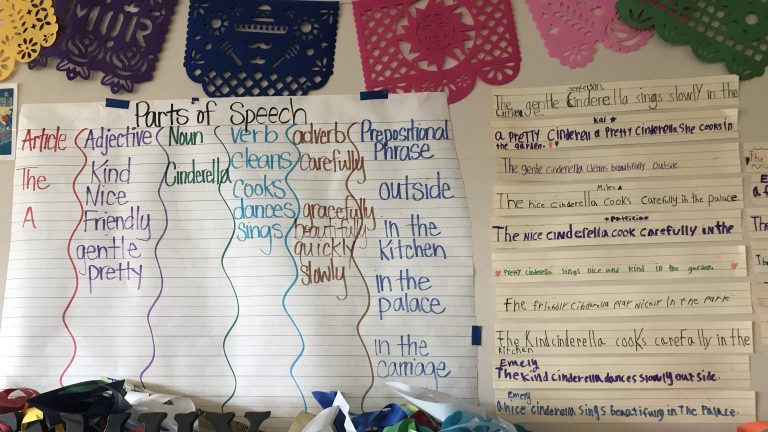 Parts of Speech
Article
The
A
Adjective
Kind
Nice
Friendly
gentle
pretty
Noun
Cinderella
verb
cleans
cooks
dances
sings
adverb
carefully
gracefully
beautifully
quickly
slowly
Prepositional
Phrase
outside
in the
kitchen
in the
palace
in the
carriage
The gentle Cinderella sings slowly in the
Carriage.
Kai
a PRETTY CINDERELL a PRETTY CINDERELLA She cooks in
the garden.
The gente cinderella cleans beautifully outside
Miley
The nice cinderella cooks carefully in the palace
Patricia
The Nice cinderella cook carefully in the
Pretty cinderella sings nice and kind in the garden.
The Cinderella Play in the Park
The Kind cinderella cooks carefully in the
kitchen
Emely
The kind cinderella dances slowly outside.
Emely
A nice cinderella sings beautifully in The Palace.